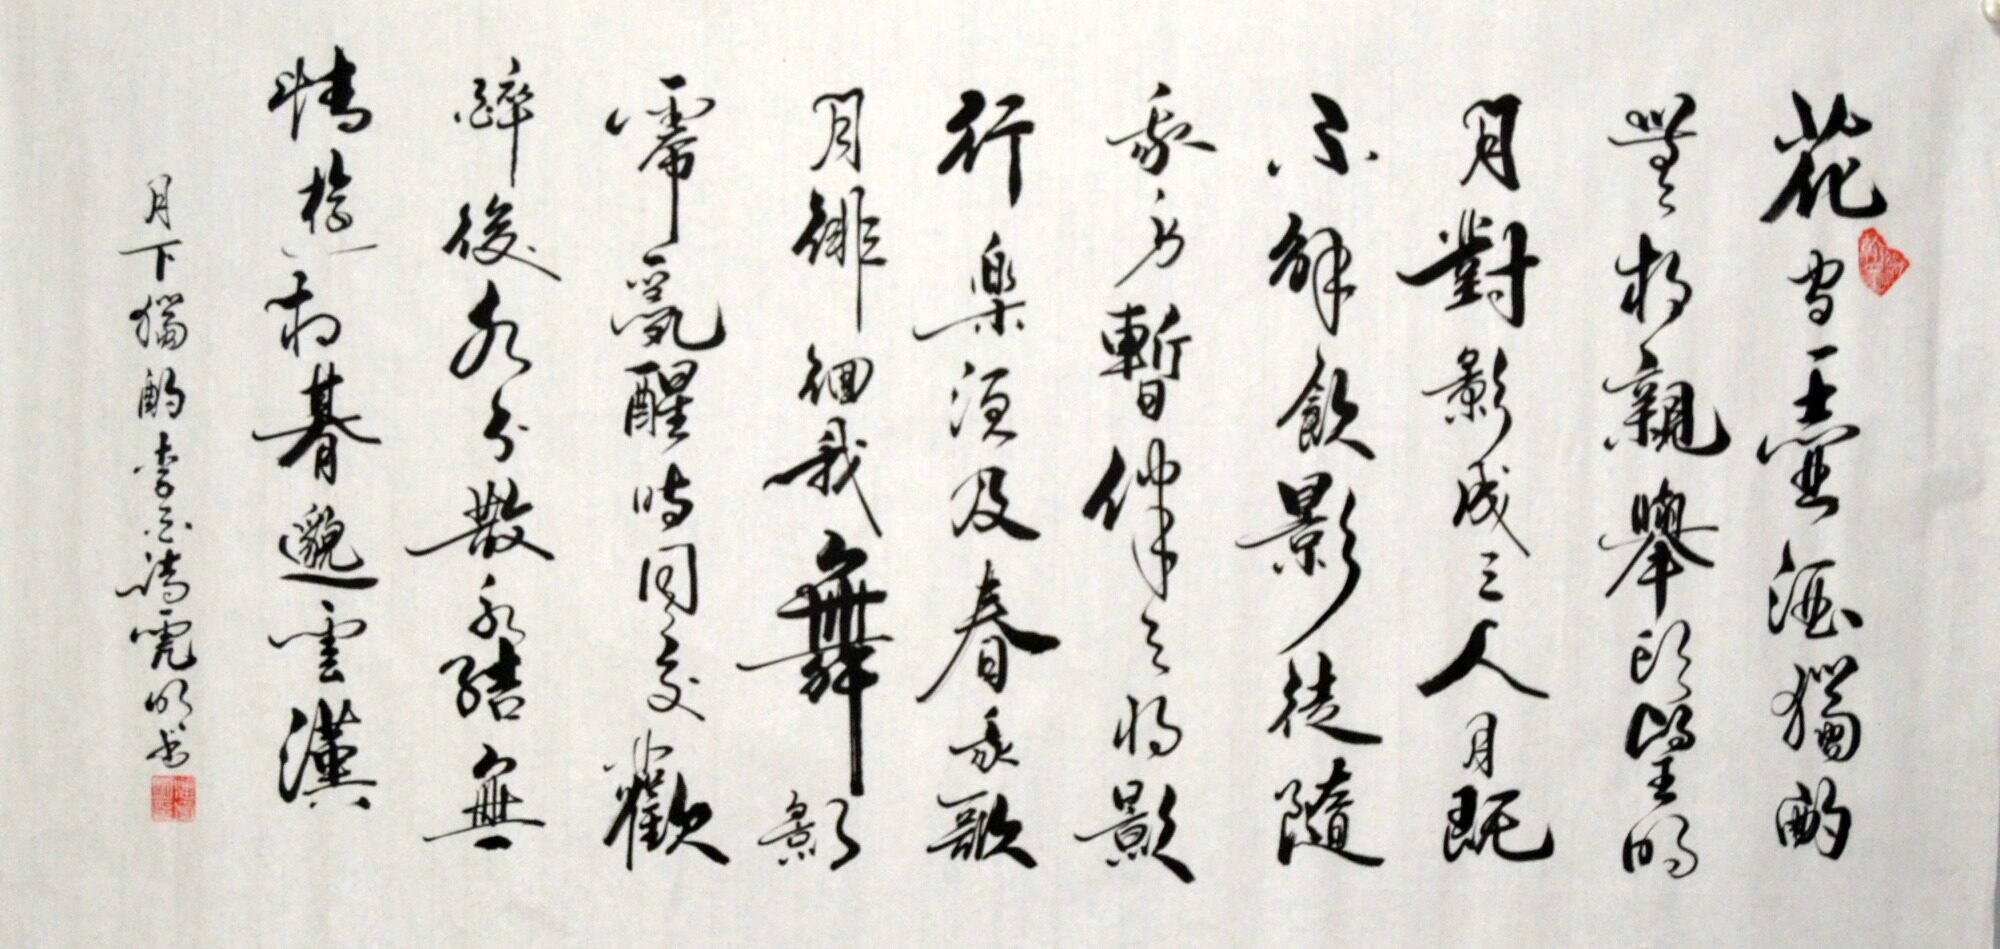 花間一壺酒獨酌
無相親舉頭望明
月對影成三人月既
不解飲影徒隨
我身暫伴之將影
行樂須及春我歌
月徘徊我舞影
零亂醒時同交歡
醉後各分散永結無
情遊相期邈雲漢
月下獨酌李白詩明书